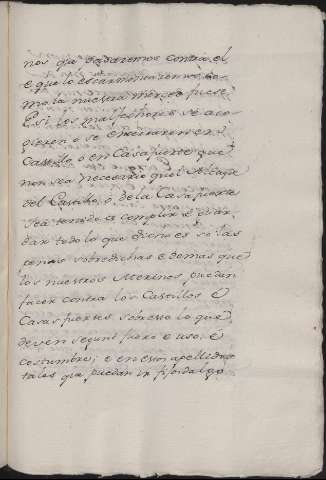 nos que daremos contra el
e que lo escarmentaremos co-
mo la nuestra merced fuese
E si los malfechores se aco-
gieren o se encerraren en
Castillo o en Casa fuerte que
non sea necesario que el Alcayde
del Castillo ó de la Casa fuerte
sea tenudo a complir é guar-
dar todo lo que dicho es so las
penas sobredichas e demas que
los nuestros Merinos puedan
facer contra los Castillos é
Casas fuertes sobre esto lo que
deven segunt fuero e uso, é
costumbre; e en estos apellidos
tales que puedan ir fijosdalgo